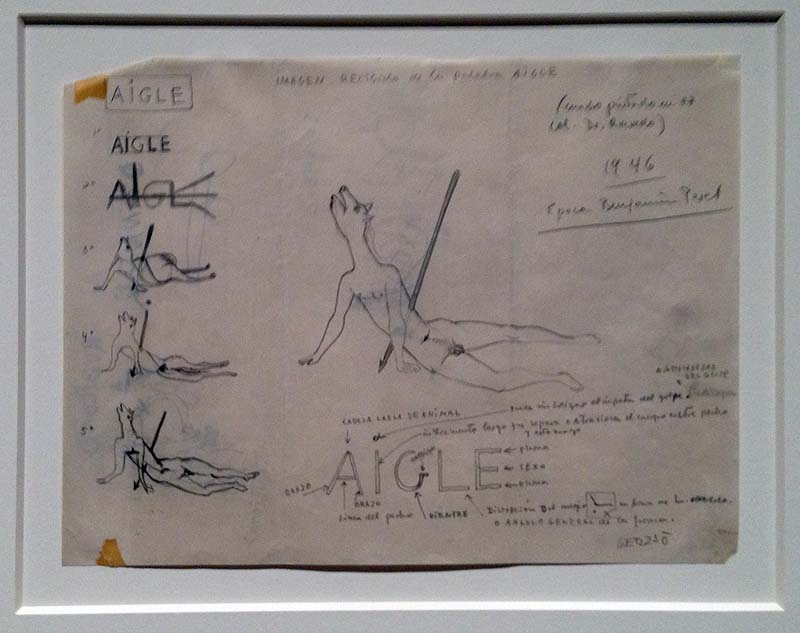 AÍGLE
IMAGEN de la palabra AIGLE
(cuadro pintado en
col. Dr.
1946
Epoca Benjamin Peret
1º
AÍGLE
2º
AIGLE
3º
4º
5º
CABEZA LARGA DE ANIMAL
del golpe
instrumento largo que separa o atraviesa el cuerpo entre pecho
y estomago
AIGLE
pierna
SEXO
pierna
BRAZO
BRAZO
Linea del pecho
VIENTRE
Disposición del cuerpo en forma de L
O ANGULO GENERAL de la forma.
GERZSO